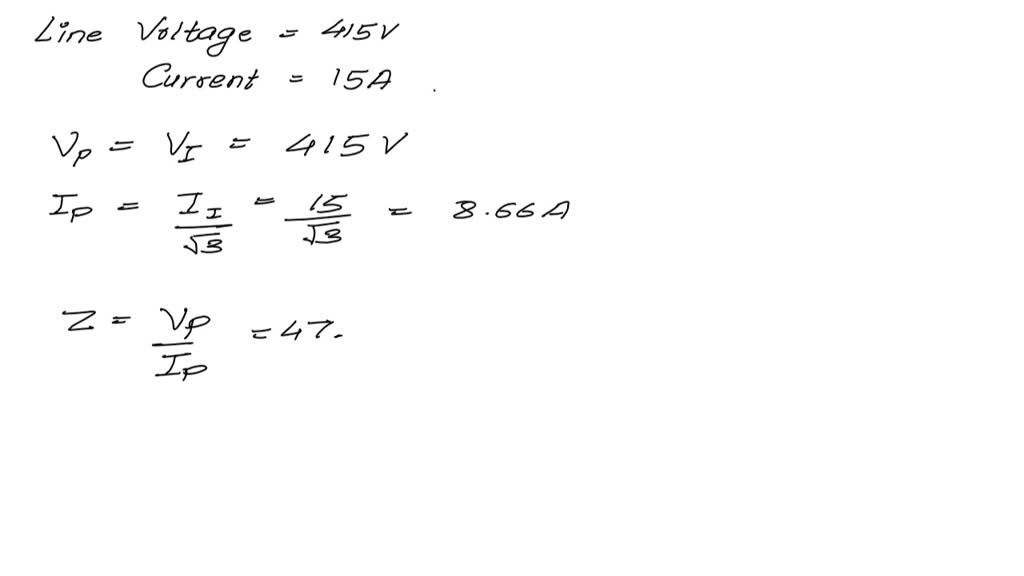 Line Voltage = 415V
Current = 15A .
Vp = VI = 415 V
Ip = II/√3 = 15/√3 = 8.66A
Z = Vp/Ip = 47.